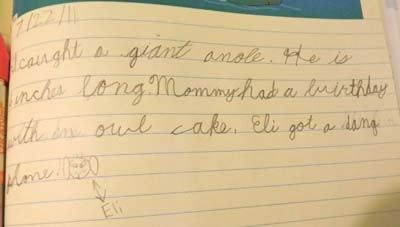 7/22/11
I caught a giant anole. He is
inches long. Mommy had a burthday
with an owl cake. Eli got a dang
phone.
Eli